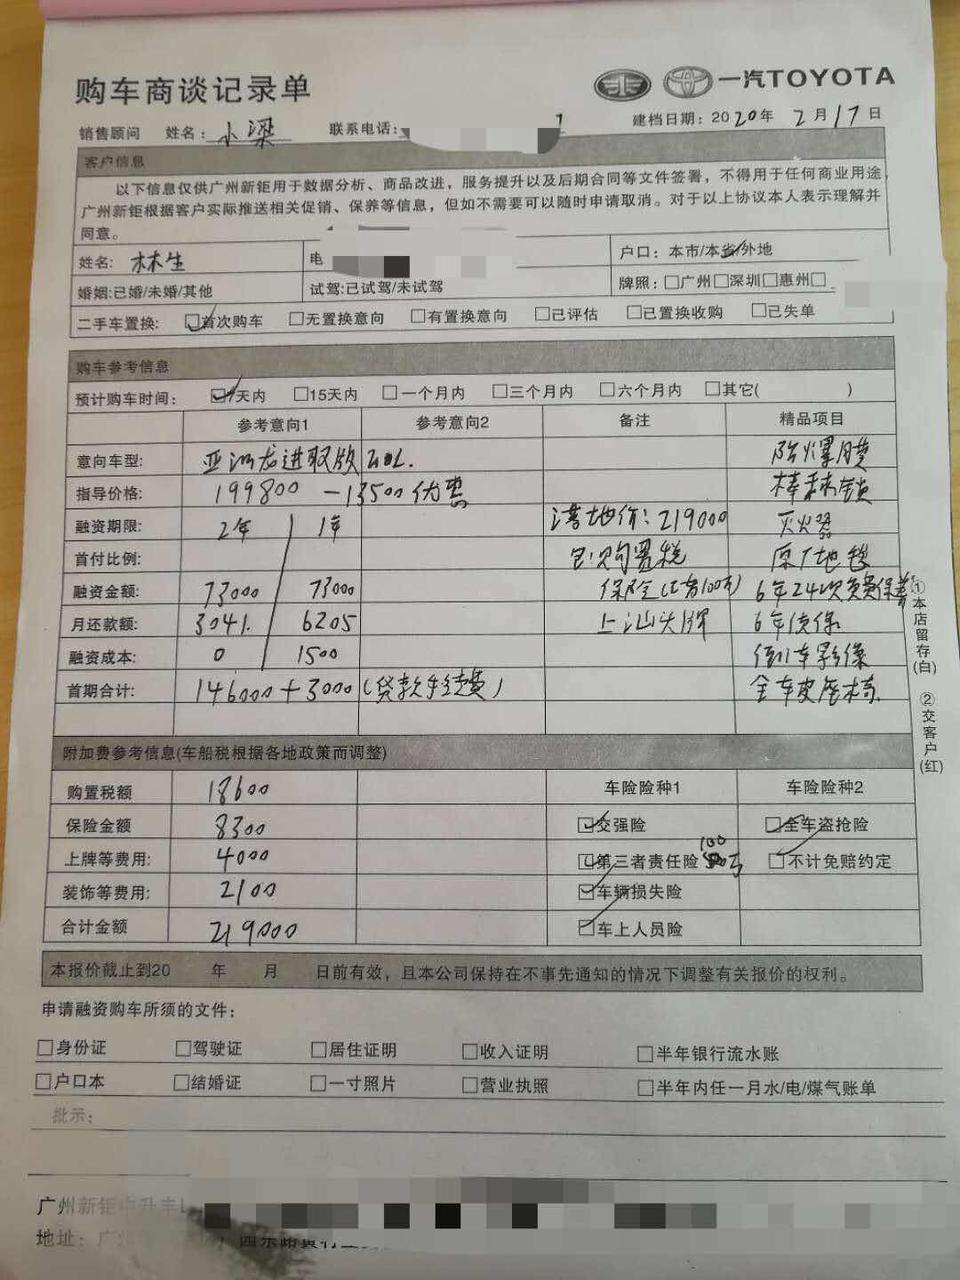 购车商谈记录单
一汽TOYOTA
销售顾问 姓名: 小梁 联系电话: 建档日期: 2020年 2月17日
客户信息
以下信息仅供广州新钜用于数据分析、商品改进，服务提升以及后期合同等文件签署，不得用于任何商业用途，
广州新钜根据客户实际推送相关促销、保养等信息，但如不需要可以随时申请取消。对于以上协议本人表示理解并
同意。
姓名: 林生 电 户口: 本市/本省/外地
婚姻:已婚/未婚/其他 试驾:已试驾/未试驾 牌照: 广州 深圳 惠州
二手车置换: 首次购车 无置换意向 有置换意向 已评估 已置换收购 已失单
购车参考信息
预计购车时间: 7天内 15天内 一个月内 三个月内 六个月内 其它( )
参考意向1 参考意向2 备注 精品项目
意向车型: 亚洲龙进取版 2.0L. 防爆膜
指导价格: 199800 -13500优惠 棒球锁
融资期限: 2年 1年 落地价: 219000 灭火器
首付比例: 包购置税 原厂地毯
融资金额: 73000 73000 保险(三者100万) 6年24次免费保养
月还款额: 3041. 6205 上汕头牌 6年质保
融资成本: 0 1500 倒车影像
首期合计: 146000+3000(贷款手续费) 全车皮座椅.
①本店留存(白) ②交客户(红)
附加费参考信息(车船税根据各地政策而调整)
购置税额 18600 车险险种1 车险险种2
保险金额 8300 交强险 全车盗抢险
上牌等费用: 4000 第三者责任险 100万 不计免赔约定
装饰等费用: 2100 车辆损失险
合计金额 219000 车上人员险
本报价截止到20 年 月 日前有效，且本公司保持在不事先通知的情况下调整有关报价的权利。
申请融资购车所须的文件:
身份证 驾驶证 居住证明 收入证明 半年银行流水账
户口本 结婚证 一寸照片 营业执照 半年内任一月水/电/煤气账单
批示:
广州新钜中升丰
地址: 广